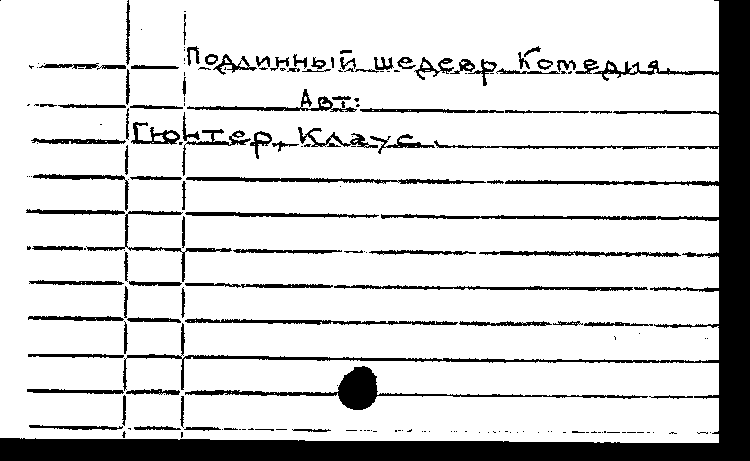 Подлинный шедевр. Комедия.
Авт:
Гюнтер, Клаус.